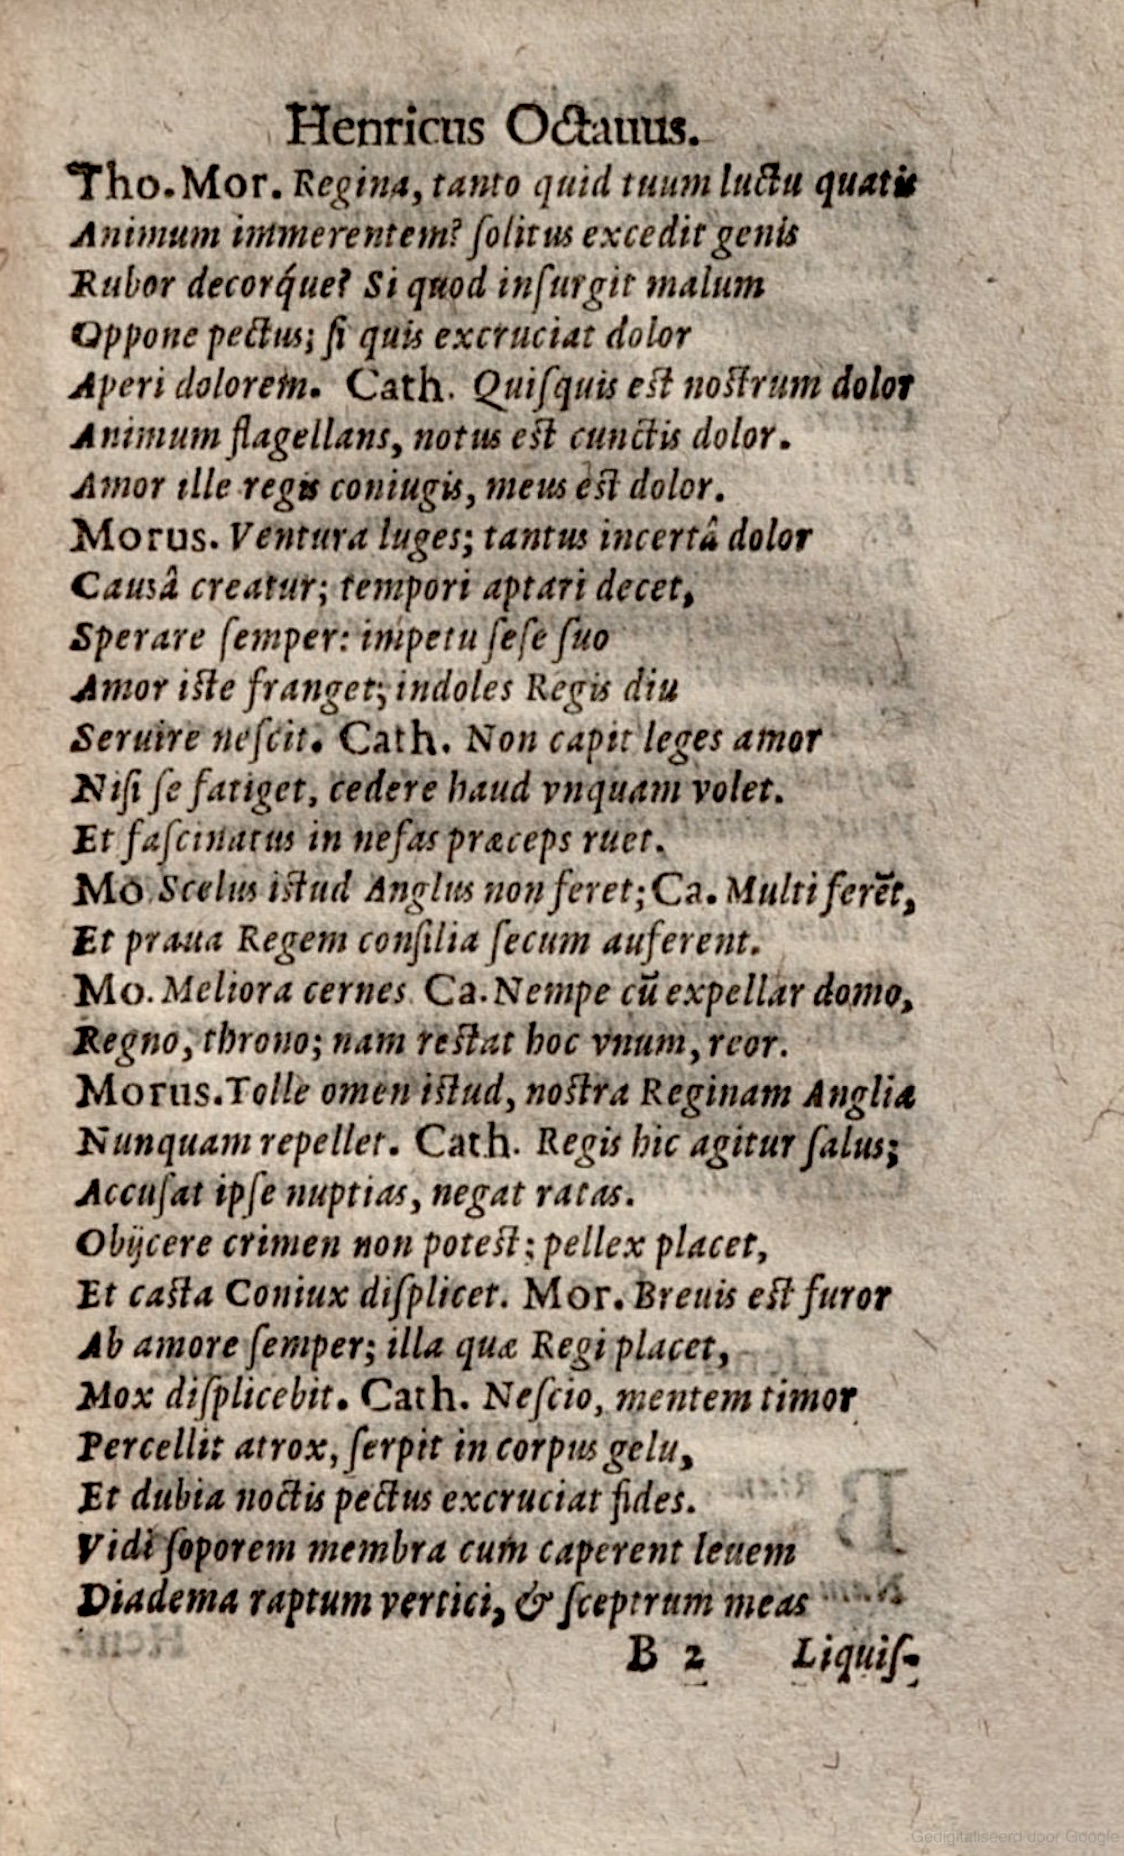 Henricus Octauus.
Tho. Mor. Regina, tanto quid tuum luctu quatis
Animum immerentem? ſolitus excedit genis
Rubor decorq́ue? Si quod inſurgit malum
Oppone pectus; ſi quis excruciat dolor
Aperi dolorem. Cath. Quiſquis eſt noſtrum dolor
Animum flagellans, notus eſt cunctis dolor.
Amor ille regis coniugis, meus eſt dolor.
Morus. Ventura luges; tantus incertâ dolor
Causâ creatur; tempori aptari decet,
Sperare ſemper: impetu ſeſe ſuo
Amor iſte franget; indoles Regis diu
Seruire neſcit. Cath. Non capit leges amor
Niſi ſe fatiget, cedere haud vnquam volet.
Et faſcinatus in nefas præceps ruet.
Mo. Scelus iſtud Anglus non feret; Ca. Multi ferēt,
Et praua Regem conſilia ſecum auferent.
Mo. Meliora cernes. Ca. Nempe cū expellar domo,
Regno, throno; nam reſtat hoc vnum, reor.
Morus. Tolle omen iſtud, noſtra Reginam Anglia
Nunquam repellet. Cath. Regis hic agitur ſalus;
Accuſat ipſe nuptias, negat ratas.
Obijcere crimen non poteſt; pellex placet,
Et caſta Coniux diſplicet. Mor. Breuis eſt furor
Ab amore ſemper; illa quæ Regi placet,
Mox diſplicebit. Cath. Neſcio, mentem timor
Percellit atrox, ſerpit in corpus gelu,
Et dubia noctis pectus excruciat fides.
Vidi ſoporem membra cum caperent leuem
Diadema raptum vertici, & ſceptrum meas
B 2 Liquiſ-
Gedigitaliseerd door Google